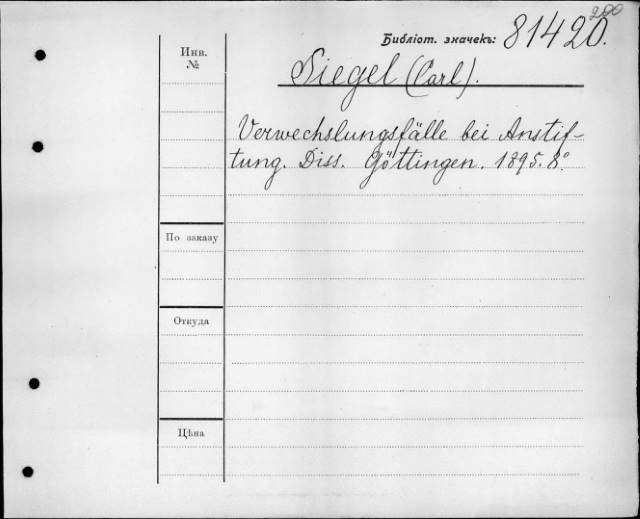 200
Библіот. значекъ: 81420.
Инв.
№
Siegel (Carl).
Verwechslungsfälle bei Anstif-
tung. Diss. Göttingen. 1895. 8°
По заказу
Откуда
Цѣна